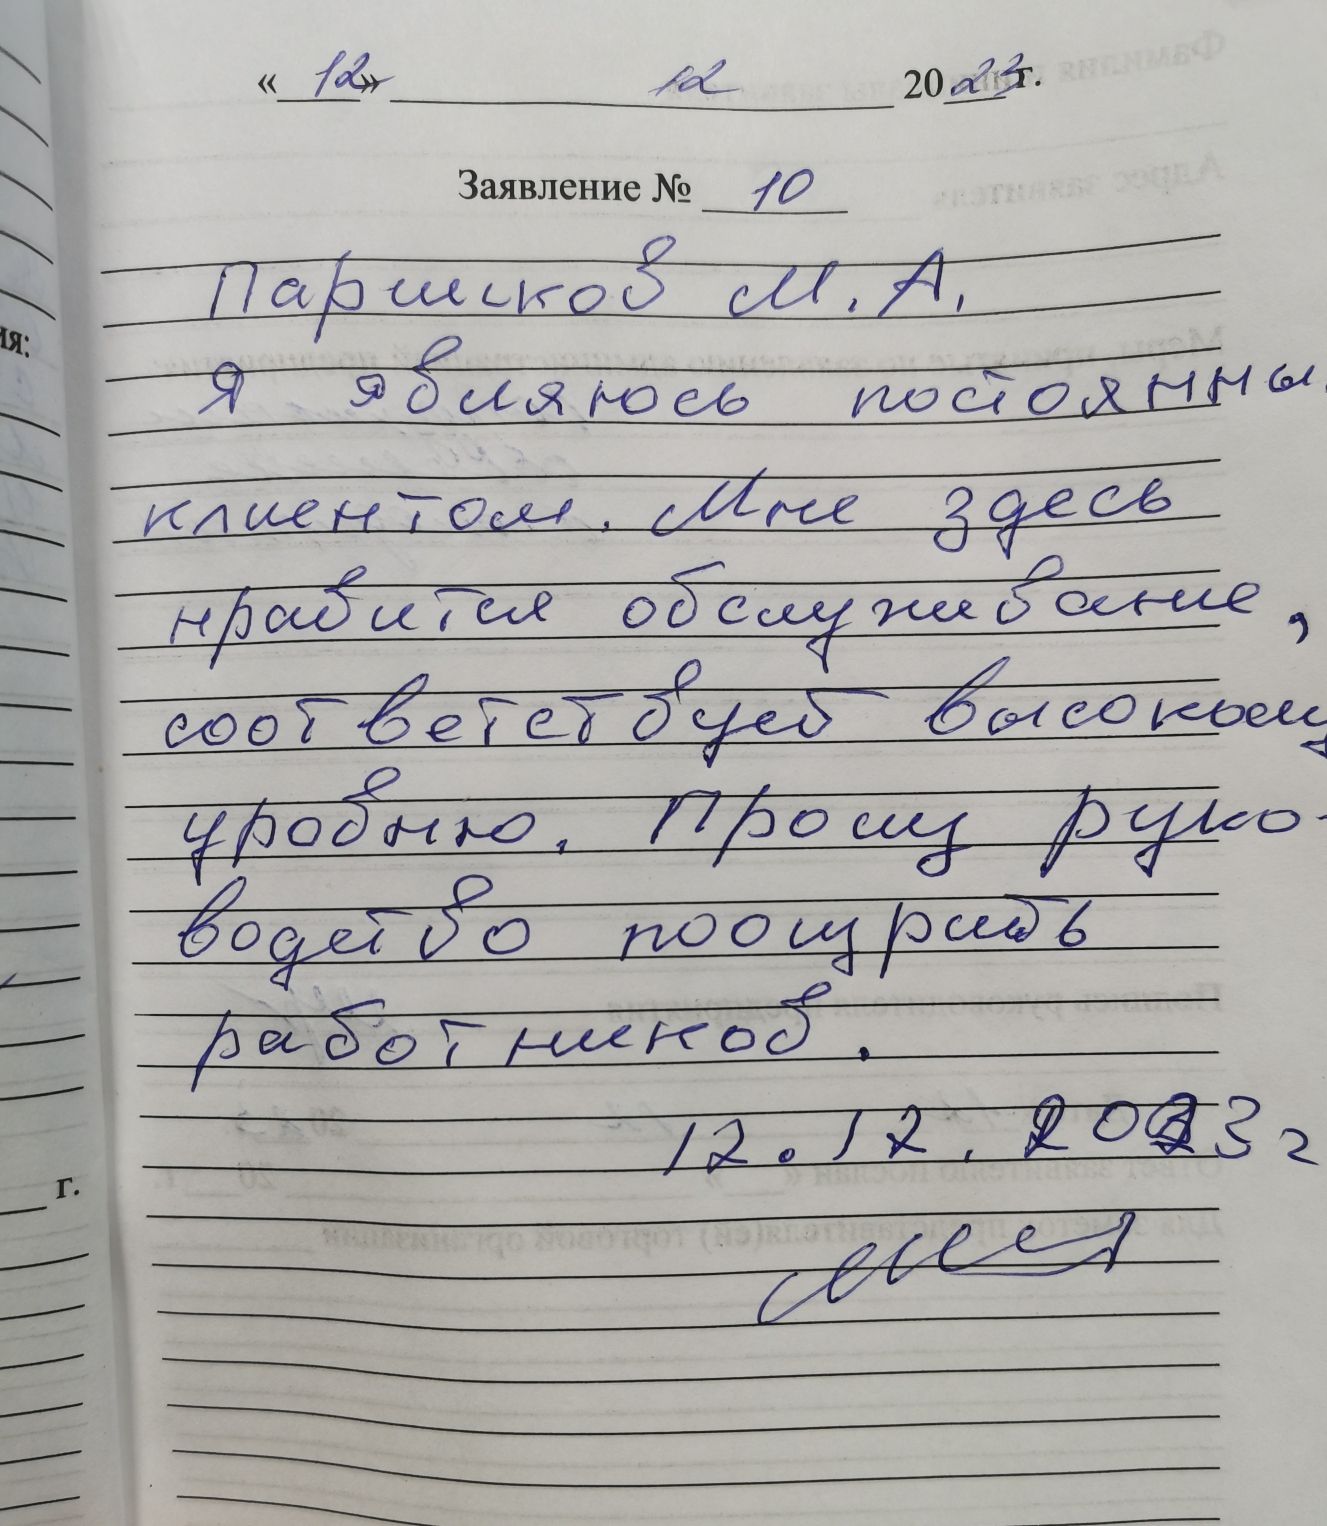 « 12 » 12 20 23 г.
Заявление № 10
Паршиков М. А.
ия:
Я являюсь постоянны
клиентом. Мне здесь
нравится обслуживание,
соответствует высокому
уровню. Прошу руко-
водство поощрить
работников.
12.12.2023 г
г.